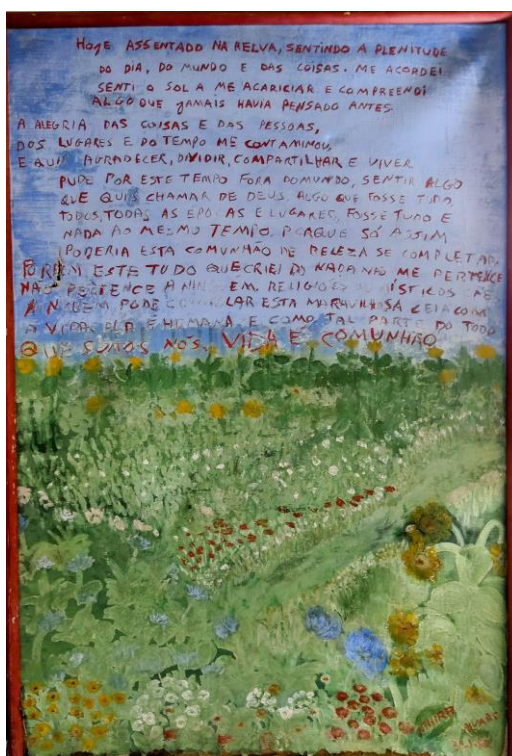 HOJE ASSENTADO NA RELVA, SENTINDO A PLENITUDE
DO DIA, DO MUNDO E DAS COISAS. ME ACORDEI
SENTI O SOL A ME ACARICIAR E COMPREENDI
ALGO QUE JAMAIS HAVIA PENSADO ANTES.
A ALEGRIA DAS COISAS E DAS PESSOAS,
DOS LUGARES E DO TEMPO ME CONTAMINOU,
E QUIS AGRADECER, DIVIDIR, COMPARTILHAR E VIVER
PUDE POR ESTE TEMPO FORA DO MUNDO, SENTIR ALGO
QUE QUIS CHAMAR DE DEUS, ALGO QUE FOSSE TUDO
TODOS, TODAS AS EPOCAS E LUGARES, FOSSE TUDO E
NADA AO MESMO TEMPO. PORQUE SÓ ASSIM
PODERIA ESTA COMUNHÃO DE BELEZA SE COMPLETAR,
PORÉM ESTE TUDO QUE CRIEI DO NADA NÃO ME PERTENCE
NÃO PERTENCE A EM, RELIGIOSOS MÍSTICOS
A PODE ESTA MARAVILHOSA CEIA COM
A VIDA, ELA É HUMANA, E COMO TAL PARTE DO TODO
QUE SOMOS NÓS, VIDA É COMUNHÃO